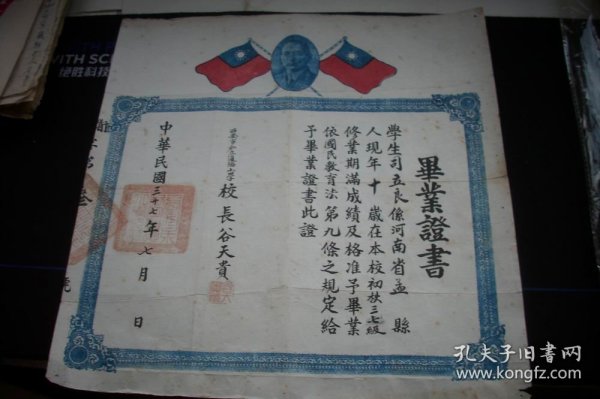 畢業證書
學生司立良係河南省孟縣
人現年十歲在本校初扶三七級
修業期滿成績及格准予畢業
依國民教育法第九條之規定給
予畢業證書此證
校長谷天貴
中華民國三十七年七月 日
WITH SC
绝胜科技
孔夫子旧书网
www.kongfz.com